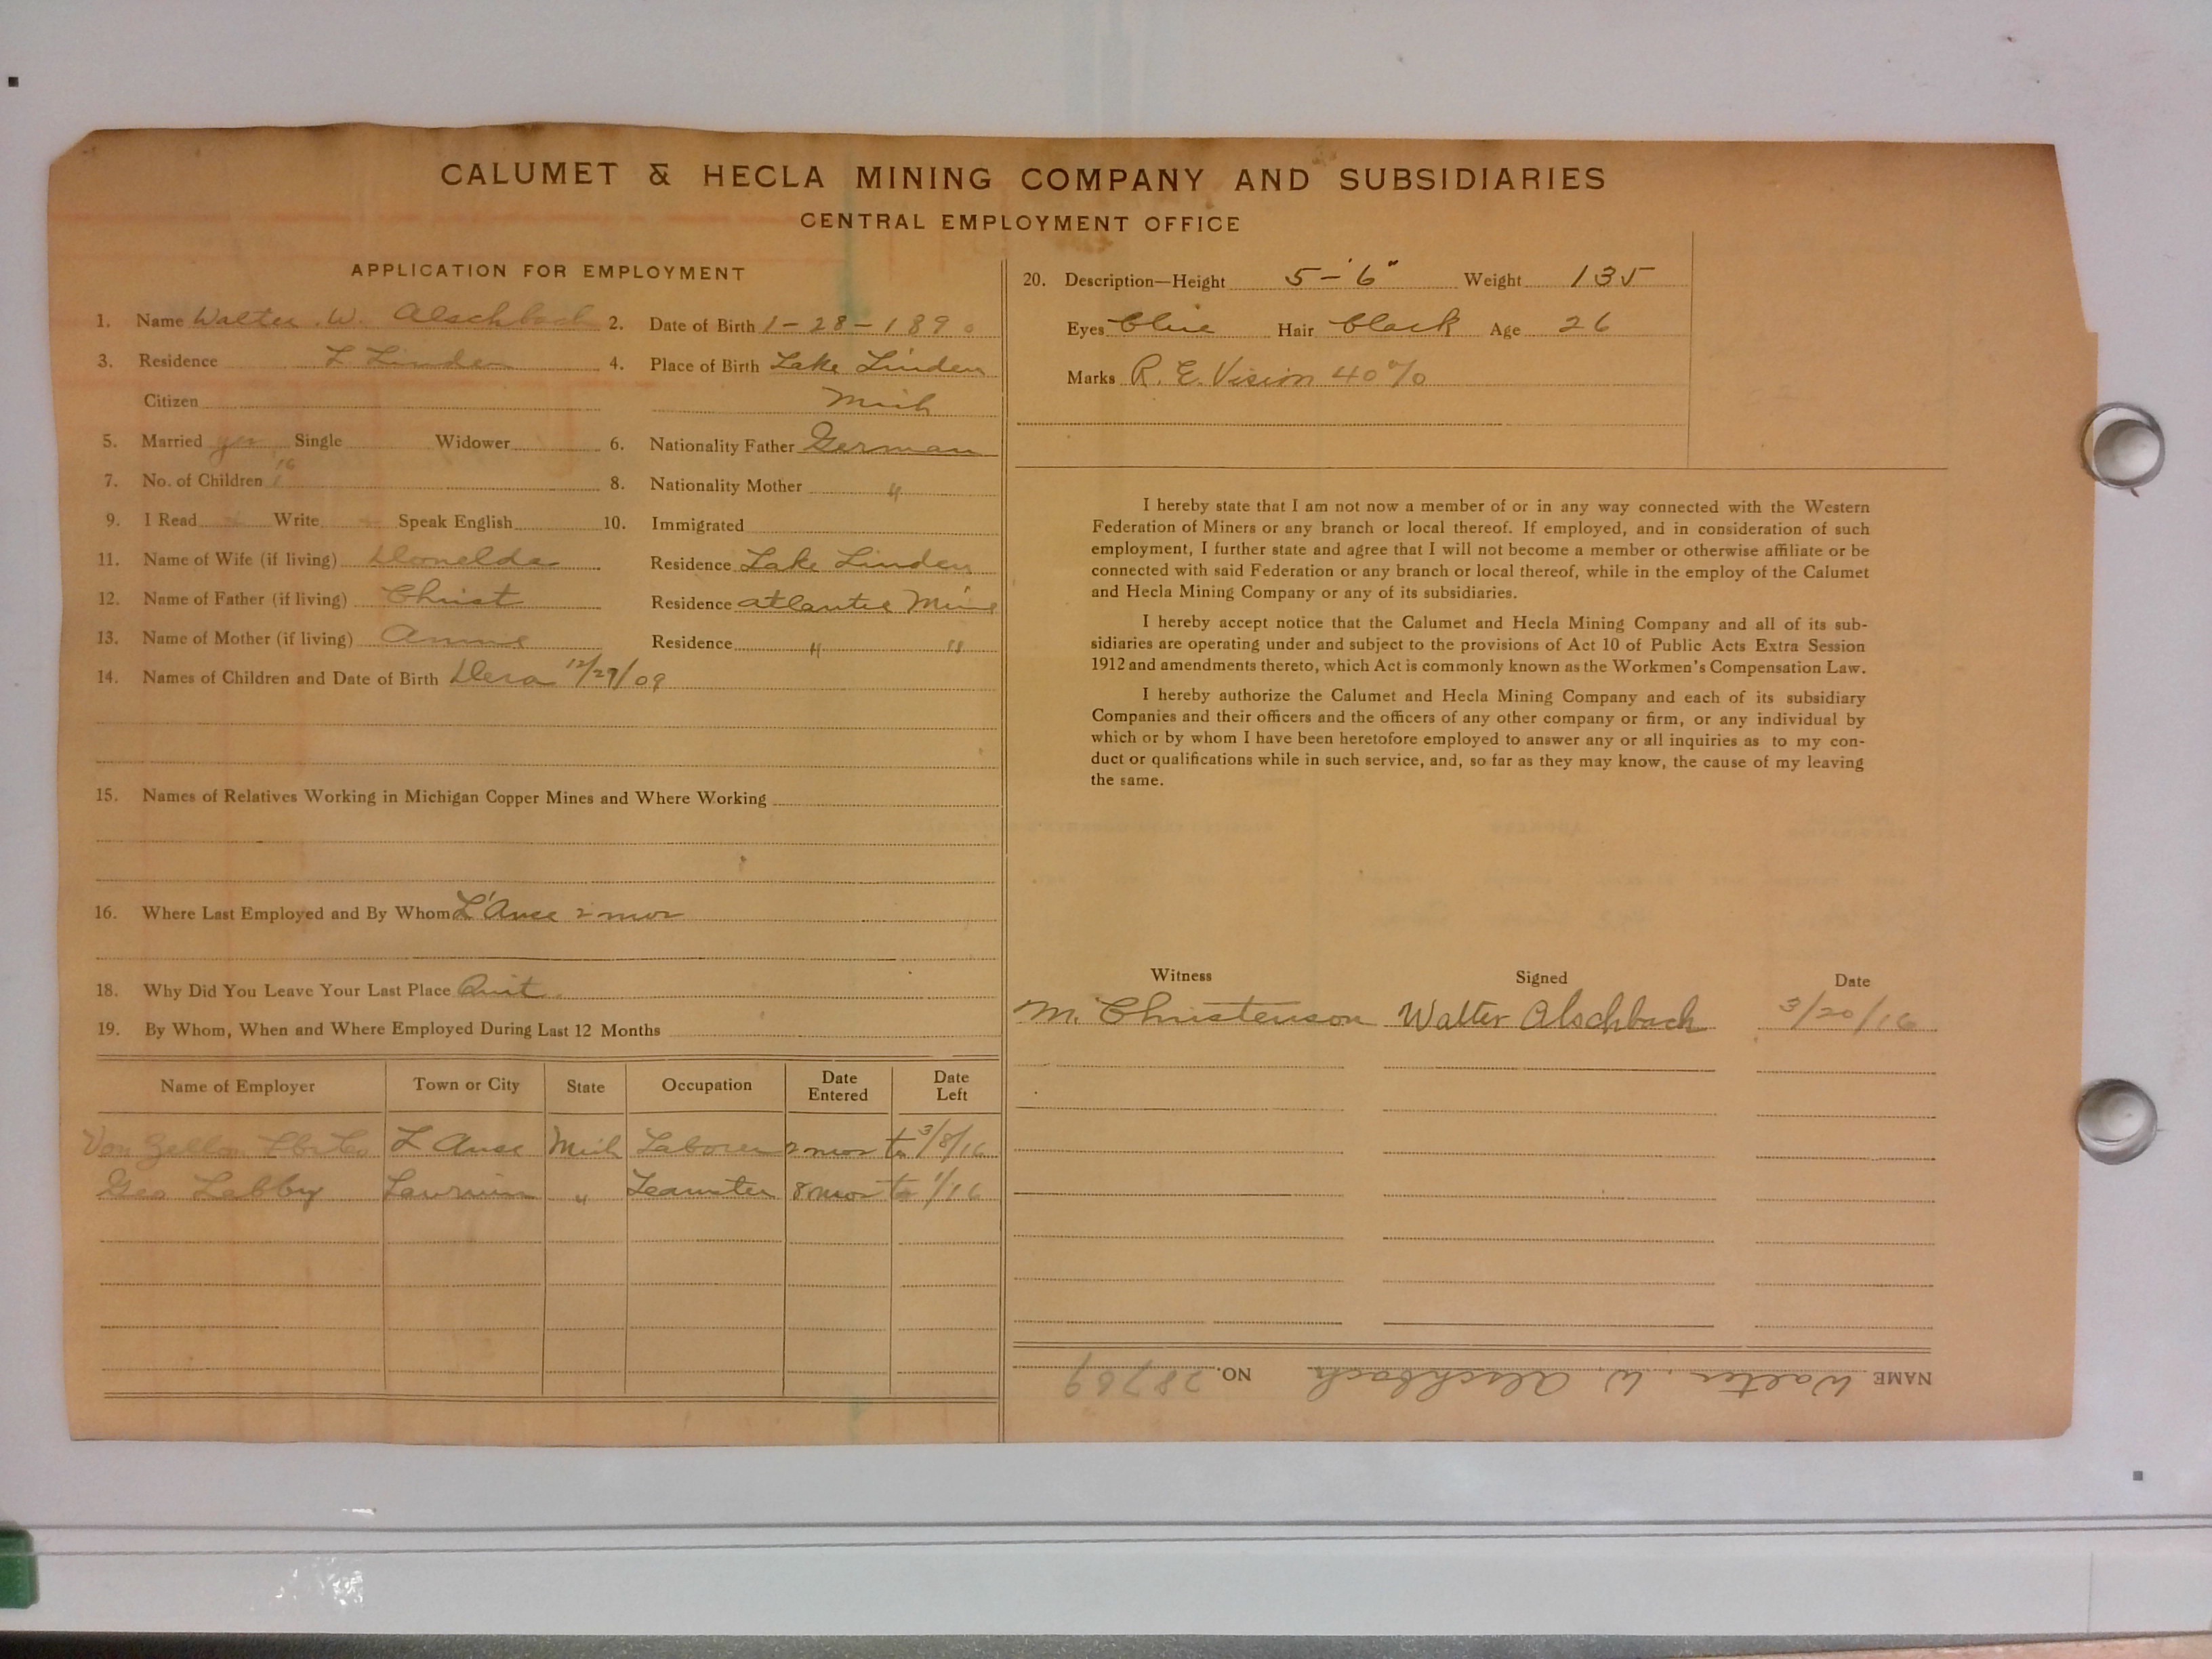 CALUMET & HECLA MINING COMPANY AND SUBSIDIARIES
CENTRAL EMPLOYMENT OFFICE
APPLICATION FOR EMPLOYMENT
1. Name Walter W. Alschbach 2. Date of Birth 1-28-1890
3. Residence L Linden 4. Place of Birth Lake Linden
Citizen Mich
5. Married yes Single Widower 6. Nationality Father German
7. No. of Children 8. Nationality Mother "
9. I Read Write Speak English 10. Immigrated
11. Name of Wife (if living) Donelda Residence Lake Linden
12. Name of Father (if living) Christ Residence Atlantic Mine
13. Name of Mother (if living) Residence " "
14. Names of Children and Date of Birth 12/29/09
15. Names of Relatives Working in Michigan Copper Mines and Where Working
16. Where Last Employed and By Whom L'Anse 2 mos
18. Why Did You Leave Your Last Place Quit
19. By Whom, When and Where Employed During Last 12 Months
Name of Employer Town or City State Occupation Date Entered Date Left
Von Zellen L'Anse Mich Laborer 2 mos to 3/8/16
Geo Labby Laurium " Teamster 8 mos to 1/16
20. Description—Height 5-'6" Weight 135
Eyes blue Hair black Age 26
Marks R. E. Vision 40%
I hereby state that I am not now a member of or in any way connected with the Western
Federation of Miners or any branch or local thereof. If employed, and in consideration of such
employment, I further state and agree that I will not become a member or otherwise affiliate or be
connected with said Federation or any branch or local thereof, while in the employ of the Calumet
and Hecla Mining Company or any of its subsidiaries.
I hereby accept notice that the Calumet and Hecla Mining Company and all of its sub-
sidiaries are operating under and subject to the provisions of Act 10 of Public Acts Extra Session
1912 and amendments thereto, which Act is commonly known as the Workmen's Compensation Law.
I hereby authorize the Calumet and Hecla Mining Company and each of its subsidiary
Companies and their officers and the officers of any other company or firm, or any individual by
which or by whom I have been heretofore employed to answer any or all inquiries as to my con-
duct or qualifications while in such service, and, so far as they may know, the cause of my leaving
the same.
Witness Signed Date
M. Christenson Walter Alschbach 3/20/16
NAME Walter W. Alschbach NO. 28769